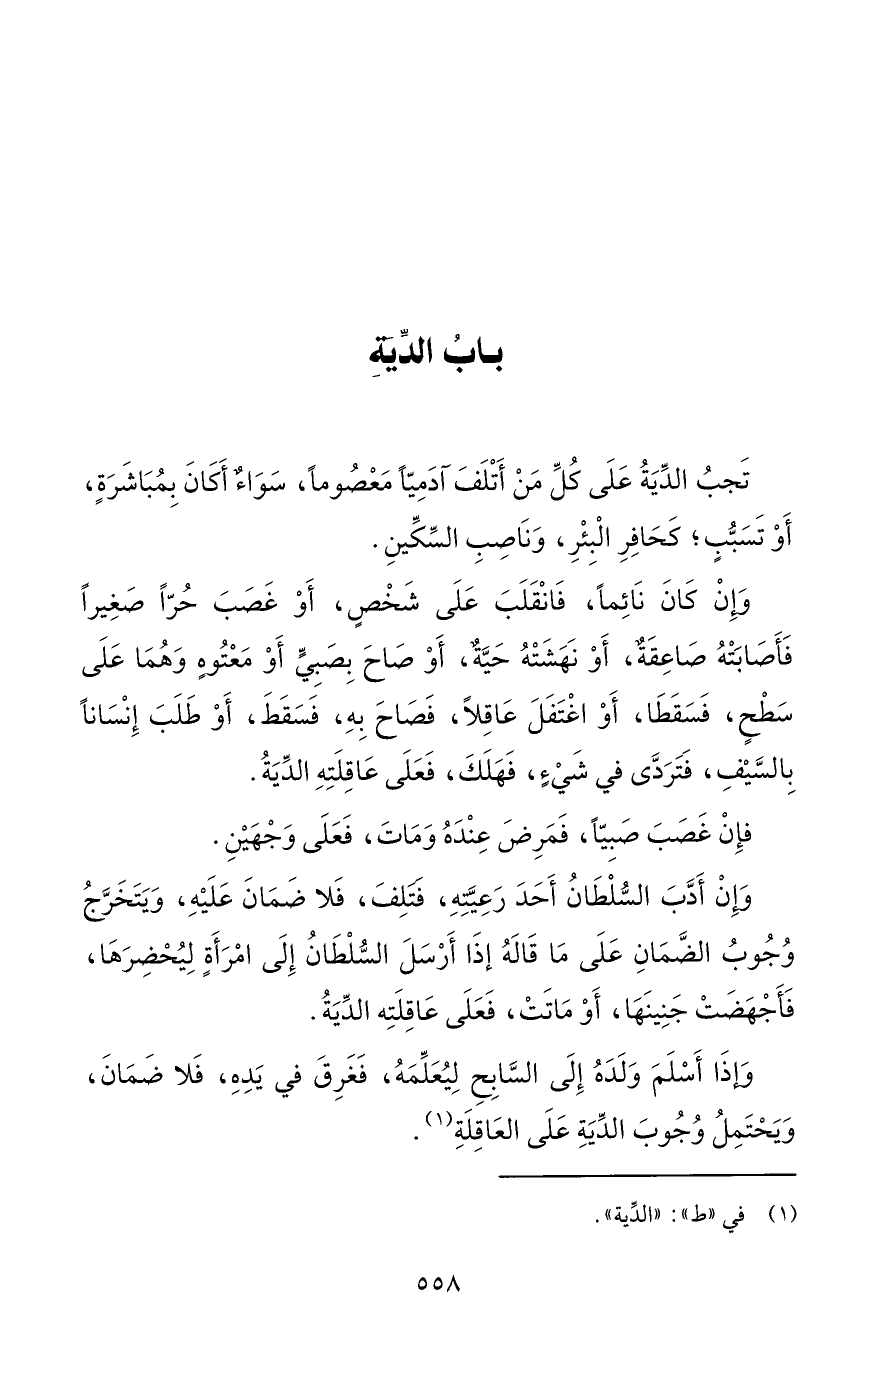 بابُ الدِّيَةِ
تَجبُ الدِّيَةُ عَلَى كُلِّ مَنْ أَتْلَفَ آدَمِيّاً مَعْصُوماً، سَوَاءٌ أَكَانَ بِمُبَاشَرَةٍ،
أَوْ تَسَبُّبٍ؛ كَحَافِرِ الْبِئْرِ، وَنَاصِبِ السِّكِّينِ.
وَإِنْ كَانَ نَائِماً، فَانْقَلَبَ عَلَى شَخْصٍ، أَوْ غَصَبَ حُرّاً صَغِيراً
فَأَصَابَتْهُ صَاعِقَةٌ، أَوْ نَهَشَتْهُ حَيَّةٌ، أَوْ صَاحَ بِصَبِيٍّ أَوْ مَعْتُوهٍ وَهُمَا عَلَى
سَطْحٍ، فَسَقَطَا، أَوْ اغْتَفَلَ عَاقِلاً، فَصَاحَ بِهِ، فَسَقَطَ، أَوْ طَلَبَ إِنْسَاناً
بِالسَّيْفِ، فَتَرَدَّى في شَيْءٍ، فَهَلَكَ، فَعَلَى عَاقِلَتِهِ الدِّيَةُ.
فإِنْ غَصَبَ صَبِيّاً، فَمَرِضَ عِنْدَهُ وَمَاتَ، فَعَلَى وَجْهَيْنِ.
وَإِنْ أَدَّبَ السُّلْطَانُ أَحَدَ رَعِيَّتِهِ، فَتَلِفَ، فَلا ضَمَانَ عَلَيْهِ، وَيَتَخَرَّجُ
وُجُوبُ الضَّمَانِ عَلَى مَا قَالَهُ إذَا أَرْسَلَ السُّلْطَانُ إِلَى امْرَأَةٍ لِيُحْضِرَهَا،
فَأَجْهَضَتْ جَنِينَهَا، أَوْ مَاتَتْ، فَعَلَى عَاقِلَتِه الدِّيَةُ.
وَإذَا أَسْلَمَ وَلَدَهُ إِلَى السَّابِحِ لِيُعَلِّمَهُ، فَغَرِقَ في يَدِهِ، فَلا ضَمَانَ،
وَيَحْتَمِلُ وُجُوبَ الدِّيَةِ عَلَى العَاقِلَةِ(١).
(١) في «ط»: «الدِّية».
٥٥٨